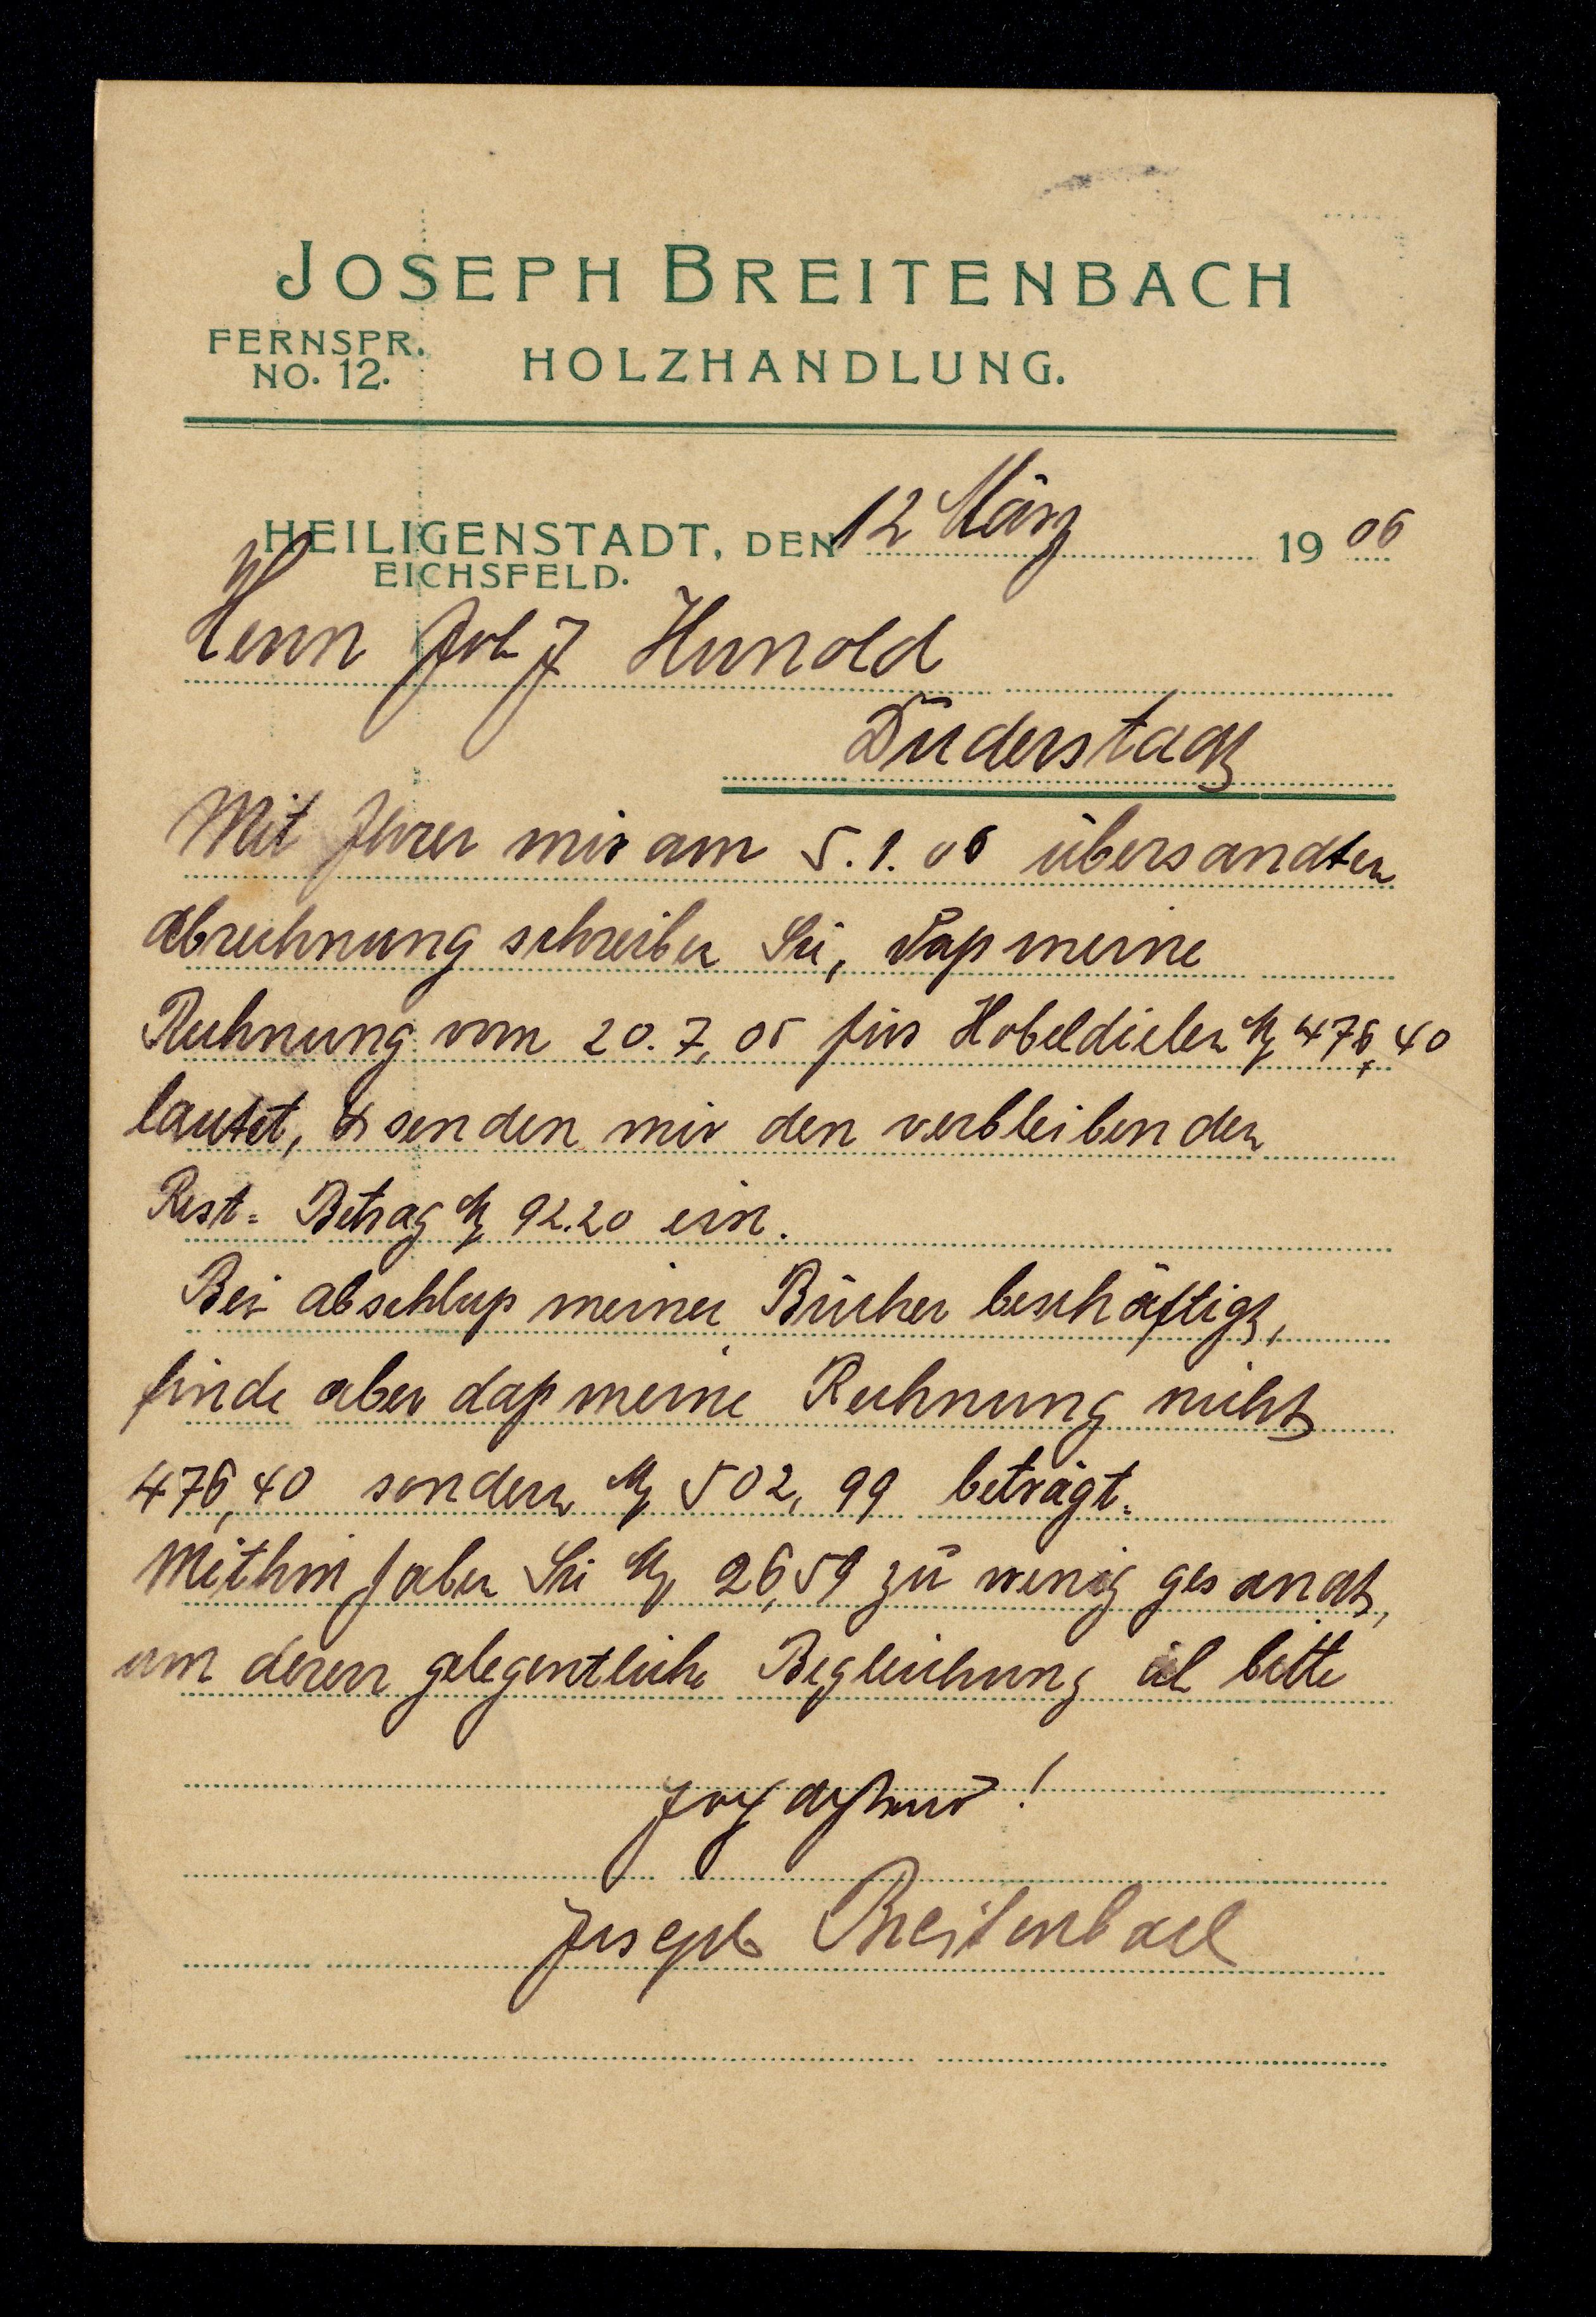 JOSEPH BREITENBACH
FERNSPR.
NO. 12.
HOLZHANDLUNG.
HEILIGENSTADT, DEN 12 März 19 06
EICHSFELD.
Herrn Joh J Hunold
Duderstadt
Mit Ihrer mir am 5.1.06 übersandten
Abrechnung schreiben Sie, daß meine
Rechnung vom 20.7,05 für Hobeldielen M 476,40
lautet, & senden mir den verbleibenden
Rest= Betrag M 92.20 ein.
Bei Abschluß meiner Bücher beschäftigt,
finde aber daß meine Rechnung nicht
476,40 sondern M 502,99 beträgt.
Mithin haben Sie M 26,59 zu wenig gesandt,
um deren gelegentliche Begleichung ich bitte
Hochachtend!
Joseph Breitenbach